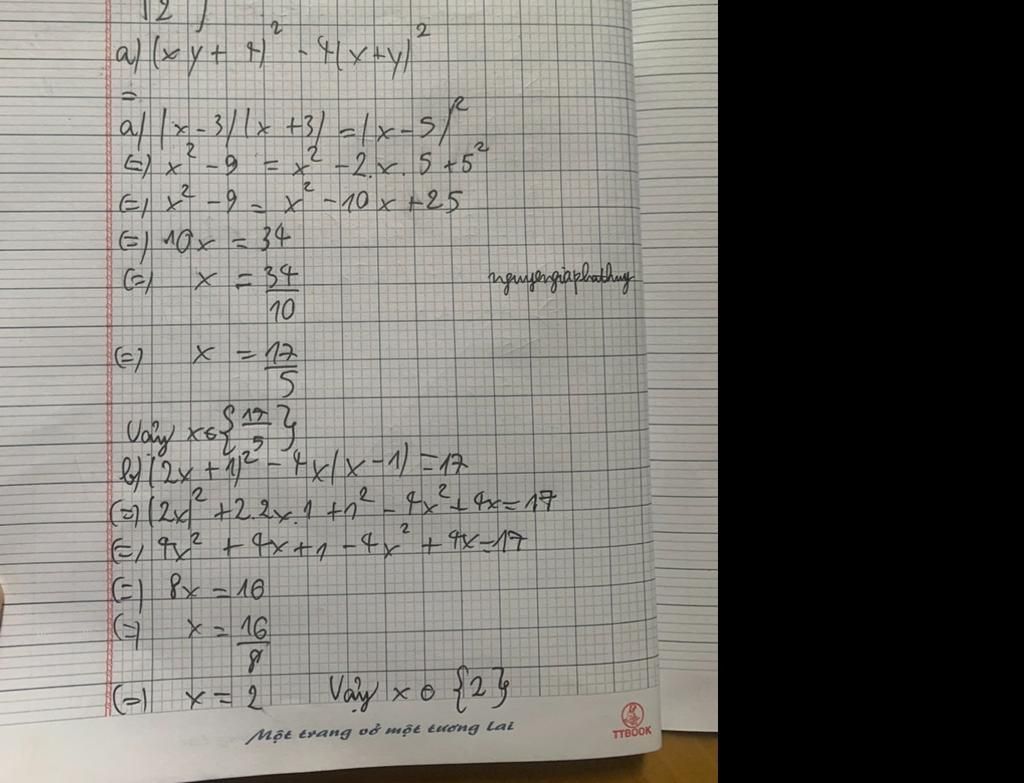 a) (xy + 4)² - 4(x+y)²
=
a) (x - 3)(x + 3) = (x - 5)²
(=) x² - 9 = x² - 2.x.5 + 5²
(=) x² - 9 = x² - 10x + 25
(=) 10x = 34
(=) x = 34/10
nguyengiaphathuy
(=) x = 17/5
Vậy x ∈ {17/5}
b) (2x + 1)² - 4x(x - 1) = 17
(=) (2x)² + 2.2x.1 + 1² - 4x² + 4x = 17
(=) 4x² + 4x + 1 - 4x² + 4x = 17
(=) 8x = 16
(=) x = 16/8
(=) x = 2 Vậy x ∈ {2}
Một trang vở một tương lai
TTBOOK